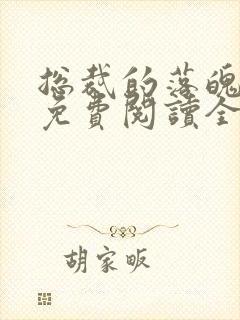 总裁的落魄
免費閱讀全
胡家畈